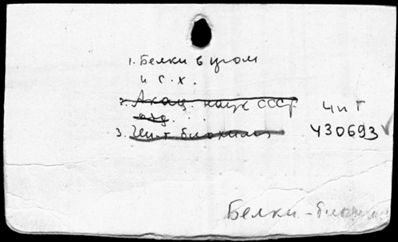 1. Белки в угом
и с. х.
2. Акад. наук СССР
3. Ин-т биохимии
ч и т
430693
Белки - биохим.